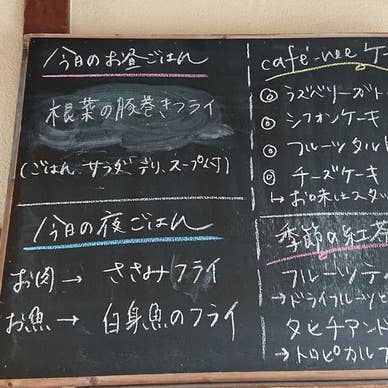 今日のお昼ごはん
根菜の豚巻きフライ
(ごはん、サラダ、デリ、スープ付)
今日の夜ごはん
お肉→ ささみフライ
お魚→ 白身魚のフライ
café-nee ケ
◎ ラズベリーガト
◎ シフォンケーキ
◎ フルーツタルト
◎ チーズケーキ
↳お味はスタ
季節の紅茶
フルーツテ
→ドライフルーツ
タヒチアン
→トロピカルフ